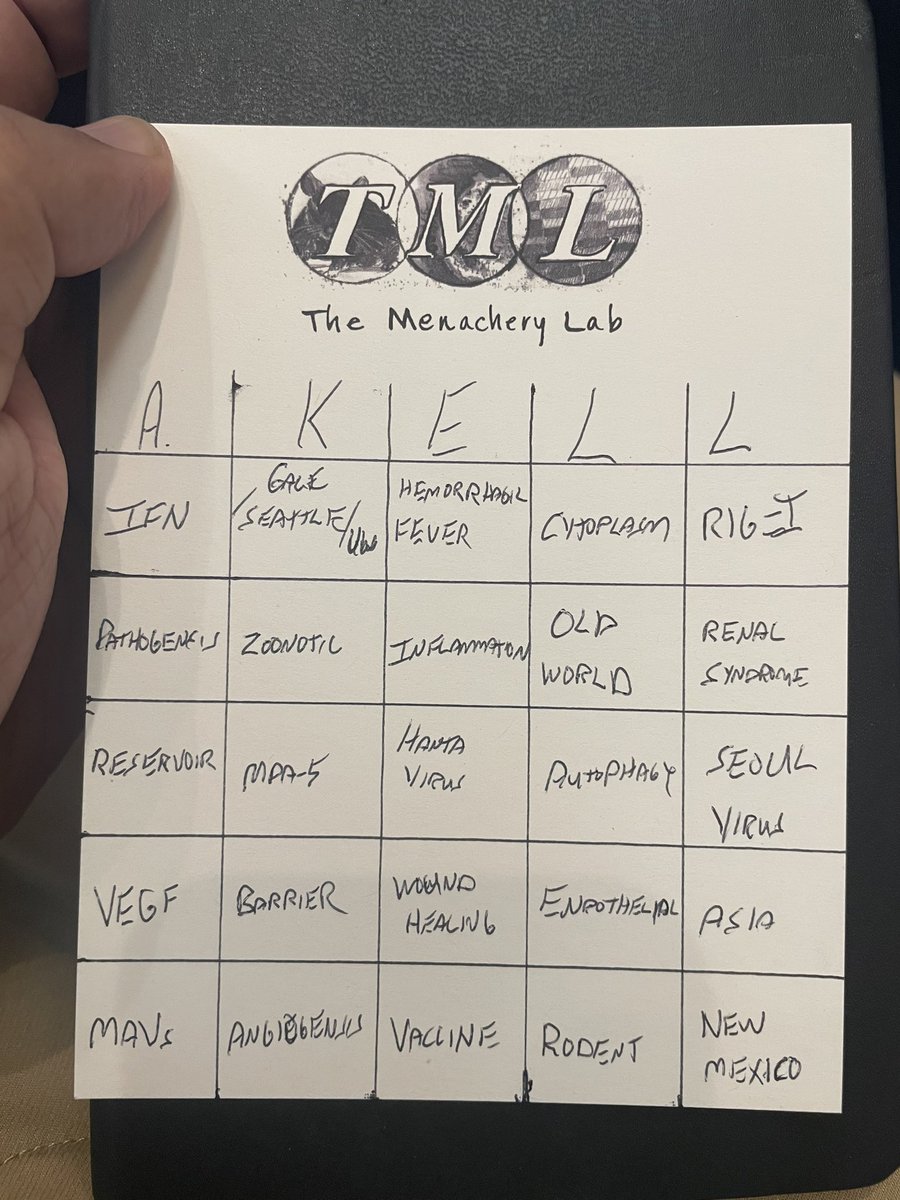 TML
The Menachery Lab
A. K E L L
IFN
GALE
/SEATTLE/UW
HEMORRHAGIC
FEVER
CYTOPLASM
RIG-I
PATHOGENSIS
ZOONOTIC
INFLAMMATON
OLD
WORLD
RENAL
SYNDROME
RESERVOIR
MDA-5
HANTA
VIRUS
AUTOPHAGY
SEOUL
VIRUS
VEGF
BARRIER
WOUND
HEALING
ENDOTHELIAL
ASIA
MAVs
ANGIOGENSIS
VACCINE
RODENT
NEW
MEXICO